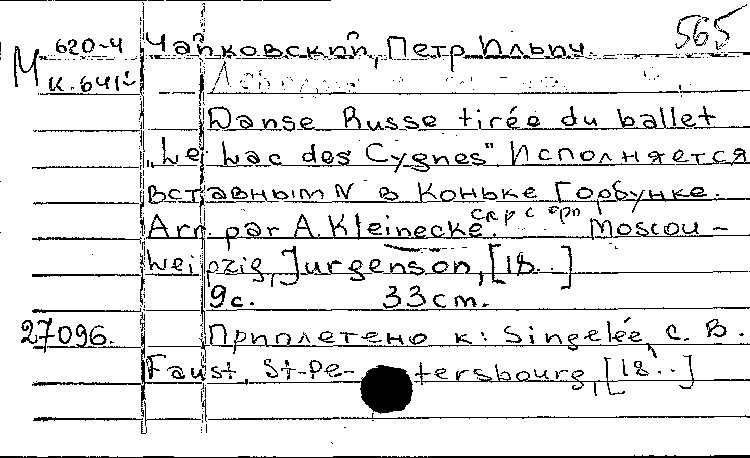 565
М 620-4 Чайковский, Петр Ильич.
К.641
Danse Russe tirée du ballet
"Le Lac des Cygnes" Исполняется
вставным N в Коньке Горбунке.
Arr. par A. Kleinecke. Moscou-
Leipzig, Jurgenson, [18..]
9с. 33cm.
27096. Приплетено к: Singelée, С. В.
Faust. St-Pe-tersbourg, [18..]